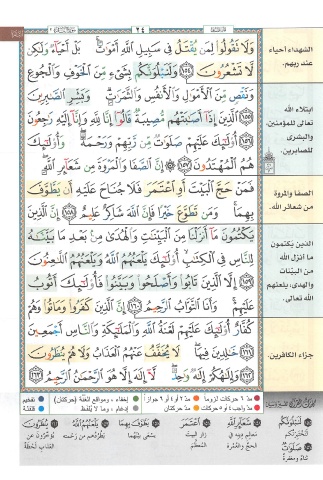 ٢٤
وَلَا تَقُولُوا لِمَن يُقْتَلُ فِي سَبِيلِ اللَّهِ أَمْوَاتٌ بَلْ أَحْيَاءٌ وَلَكِن
لَّا تَشْعُرُونَ ١٥٤ وَلَنَبْلُوَنَّكُم بِشَيْءٍ مِّنَ الْخَوْفِ وَالْجُوعِ
وَنَقْصٍ مِّنَ الْأَمْوَالِ وَالْأَنفُسِ وَالثَّمَرَاتِ وَبَشِّرِ الصَّابِرِينَ
١٥٥ الَّذِينَ إِذَا أَصَابَتْهُم مُّصِيبَةٌ قَالُوا إِنَّا لِلَّهِ وَإِنَّا إِلَيْهِ رَاجِعُونَ
١٥٦ أُولَئِكَ عَلَيْهِمْ صَلَوَاتٌ مِّن رَّبِّهِمْ وَرَحْمَةٌ وَأُولَئِكَ
هُمُ الْمُهْتَدُونَ ١٥٧ إِنَّ الصَّفَا وَالْمَرْوَةَ مِن شَعَائِرِ اللَّهِ
فَمَنْ حَجَّ الْبَيْتَ أَوِ اعْتَمَرَ فَلَا جُنَاحَ عَلَيْهِ أَن يَطَّوَّفَ
بِهِمَا وَمَن تَطَوَّعَ خَيْرًا فَإِنَّ اللَّهَ شَاكِرٌ عَلِيمٌ ١٥٨ إِنَّ الَّذِينَ
يَكْتُمُونَ مَا أَنزَلْنَا مِنَ الْبَيِّنَاتِ وَالْهُدَى مِن بَعْدِ مَا بَيَّنَّاهُ
لِلنَّاسِ فِي الْكِتَابِ أُولَئِكَ يَلْعَنُهُمُ اللَّهُ وَيَلْعَنُهُمُ اللَّاعِنُونَ
١٥٩ إِلَّا الَّذِينَ تَابُوا وَأَصْلَحُوا وَبَيَّنُوا فَأُولَئِكَ أَتُوبُ
عَلَيْهِمْ وَأَنَا التَّوَّابُ الرَّحِيمُ ١٦٠ إِنَّ الَّذِينَ كَفَرُوا وَمَاتُوا وَهُمْ
كُفَّارٌ أُولَئِكَ عَلَيْهِمْ لَعْنَةُ اللَّهِ وَالْمَلَائِكَةِ وَالنَّاسِ أَجْمَعِينَ
١٦١ خَالِدِينَ فِيهَا لَا يُخَفَّفُ عَنْهُمُ الْعَذَابُ وَلَا هُمْ يُنظَرُونَ
١٦٢ وَإِلَهُكُمْ إِلَهٌ وَاحِدٌ لَّا إِلَهَ إِلَّا هُوَ الرَّحْمَنُ الرَّحِيمُ ١٦٣
الشهداء أحياء
عند ربهم.
ابتلاء الله
تعالى للمؤمنين،
والبشرى
للصابرين.
الصفا والمروة
من شعائر الله.
الذين يكتمون
ما أنزل الله
من البينات
والهدى، يلعنهم
الله تعالى.
جزاء الكافرين.
مد ٦ حركات لزوما
مد ٢ أو ٤ أو ٦ جوازاً
إخفاء، ومواقع الغنة (حركتان)
تفخيم
مد واجب ٤ أو ٥ حركات
مد حركتان
إدغام، وما لا يلفظ
قلقلة
لَنَبْلُوَنَّكُمْ
لنختبرنكم
صَلَوَاتٌ
ثناء ومغفرة
شَعَائِرِ اللَّهِ
معالم دينه في
الحج والعمرة
اعْتَمَرَ
زار البيت
المعظم
يَطَّوَّفَ بِهِمَا
يسعى بينهما
يَلْعَنُهُمُ اللَّهُ
يطردهم من رحمته
يُنظَرُونَ
يؤخرون عن
العذاب لحظة